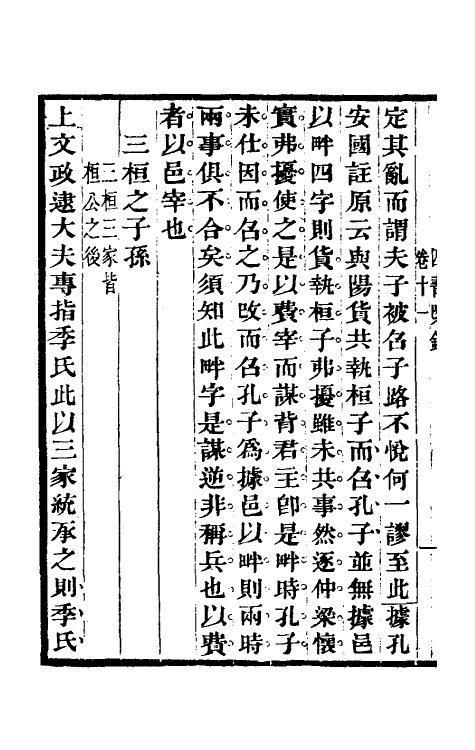 定其亂而謂夫子被召子路不悅何一謬至此據孔
安國註原云與陽貨共執桓子而召孔子並無據邑
以畔四字則貨執桓子弗擾雖未共事然逐仲梁懷
實弗擾使之是以費宰而謀背君主卽是畔時孔子
未仕因而召之乃攺而召孔子爲據邑以畔則兩時
兩事俱不合矣須知此畔字是謀逆非稱兵也以費
者以邑宰也
三桓之子孫
三桓三家皆
桓公之後
上文政逮大夫專指季氏此以三家統承之則季氏
卷十一